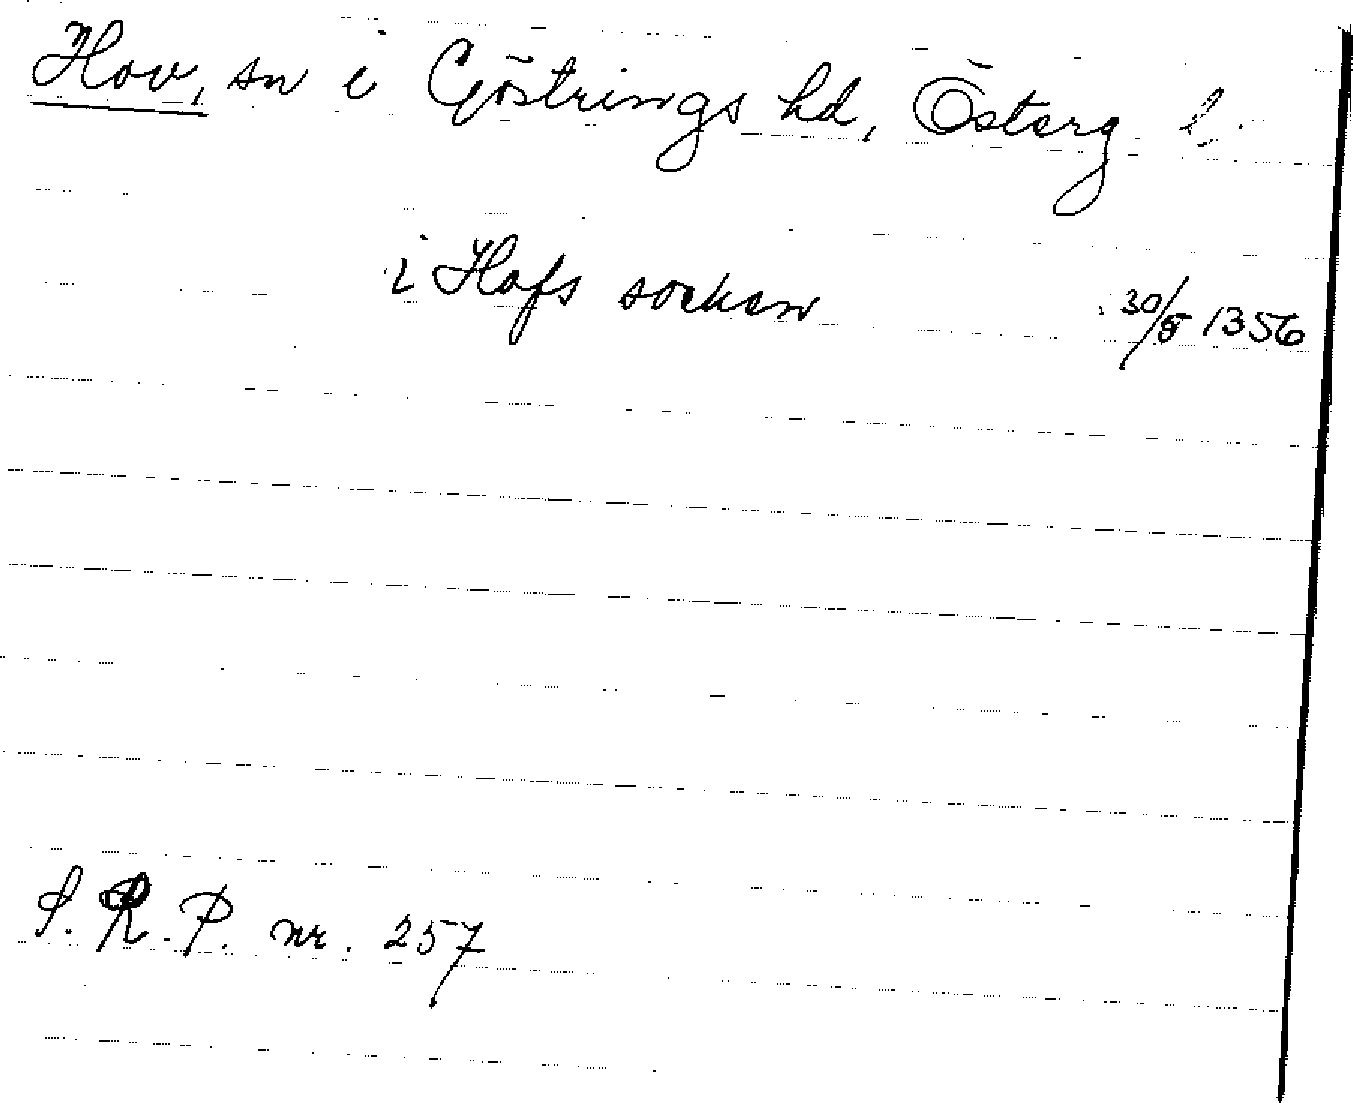 Hov, sn i Göstrings hd, Österg. l.
i Hofs socken 30/8 1356
S.R.P. nr. 257